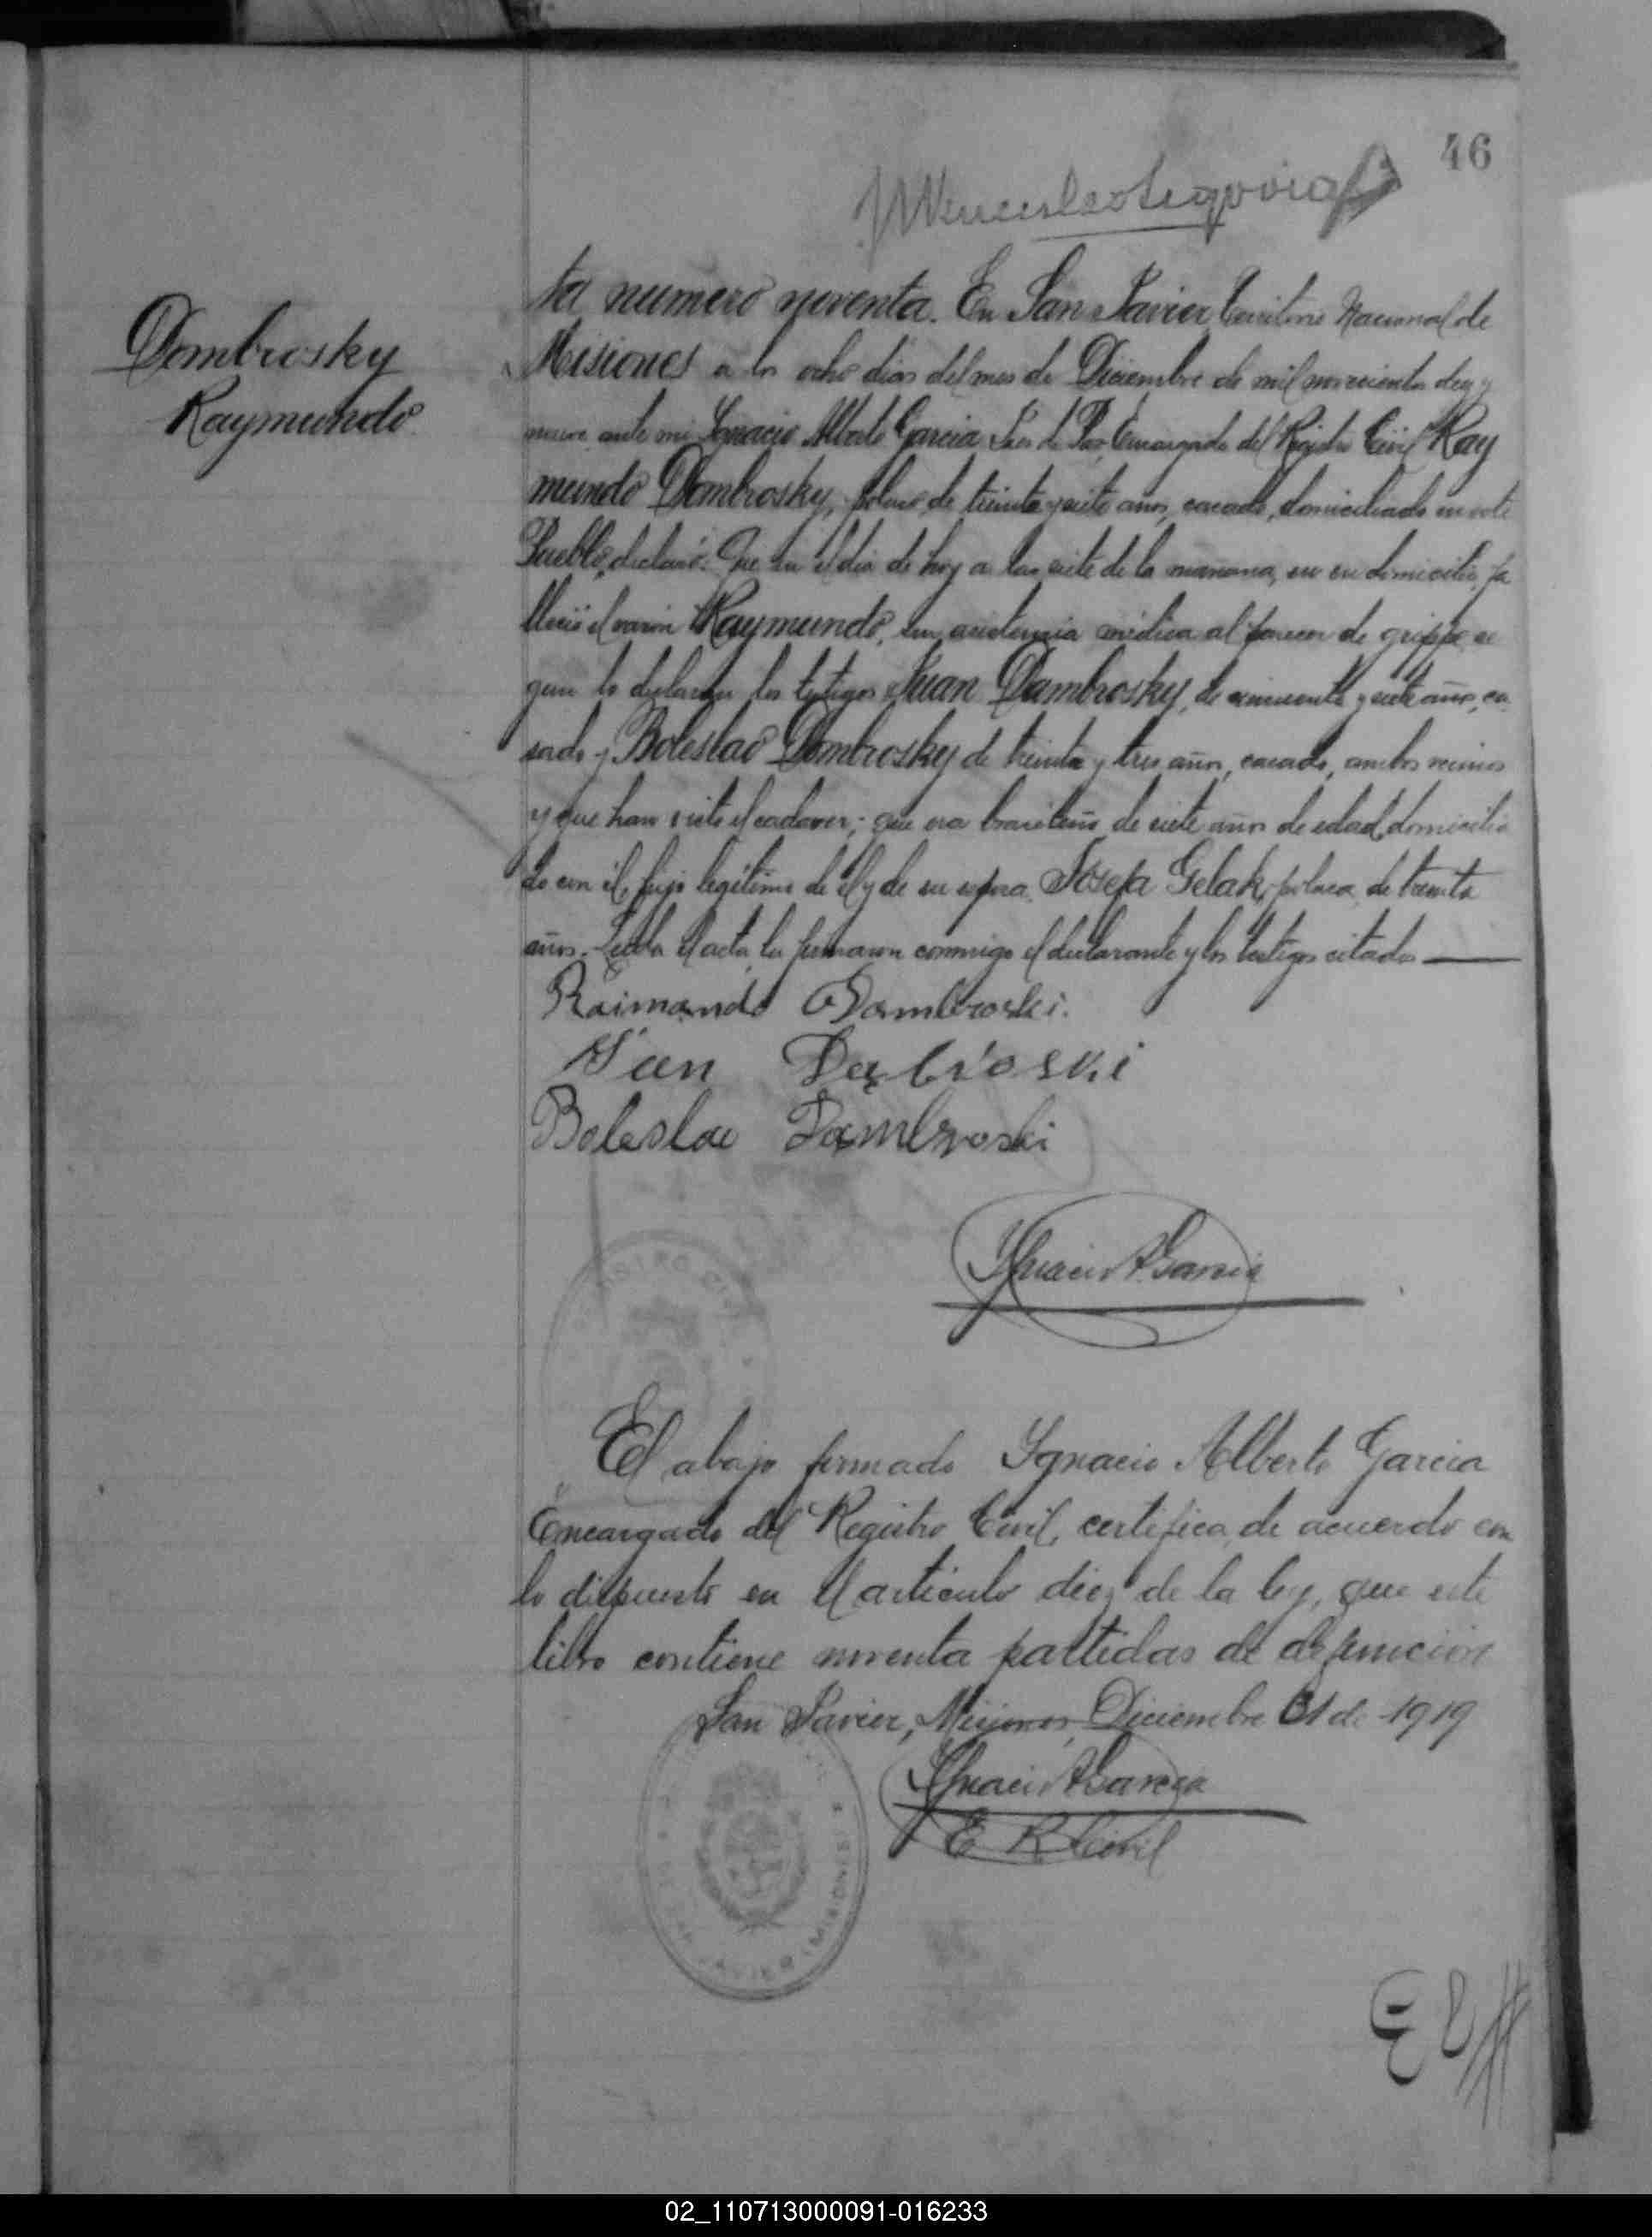 46
Dombrosky
Raymundo
ta numero noventa. En San Javier Territorio Nacional de
Misiones a los ocho dias del mes de Diciembre de mil novecientos diez y
nueve ante mi Ignacio Alberto Garcia Juez de Paz Encargado del Registro Civil Ray
mundo Dombrosky, polaco, de treinta y siete años, casado, domiciliado en este
Pueblo, declaró: Que en el dia de hoy a las siete de la mañana, en su domicilio, fa
lleció el varon Raymundo, sin asistencia médica al parecer de grippe se
gun lo declaran los testigos Juan Dambrosky, de cincuenta y siete años, ca
sado y Boleslao Dombrosky de treinta y tres años, casado, ambos vecinos
y que han visto el cadaver; que era brasileño de siete años de edad, domicilia
do con él, hijo legítimo de él y de su esposa Josefa Gelak, polaca, de treinta
años. Leida el acta, la firmaron conmigo el declarante y los testigos citados
Raimando Dambroski.
Jan Dąbroski
Boleslao Dambroski
Ygnacio A Garcia
REGISTRO CIVIL
El abajo firmado Ygnacio Alberto Garcia
Encargado del Registro Civil, certifica, de acuerdo con
lo dispuesto en el articulo diez de la ley, que este
libro contiene noventa partidas de defuncion
San Javier, Misiones, Diciembre 31 de 1919
Ygnacio A Garcia
E R Civil
JAVIER (MISIONES)
02_110713000091-016233